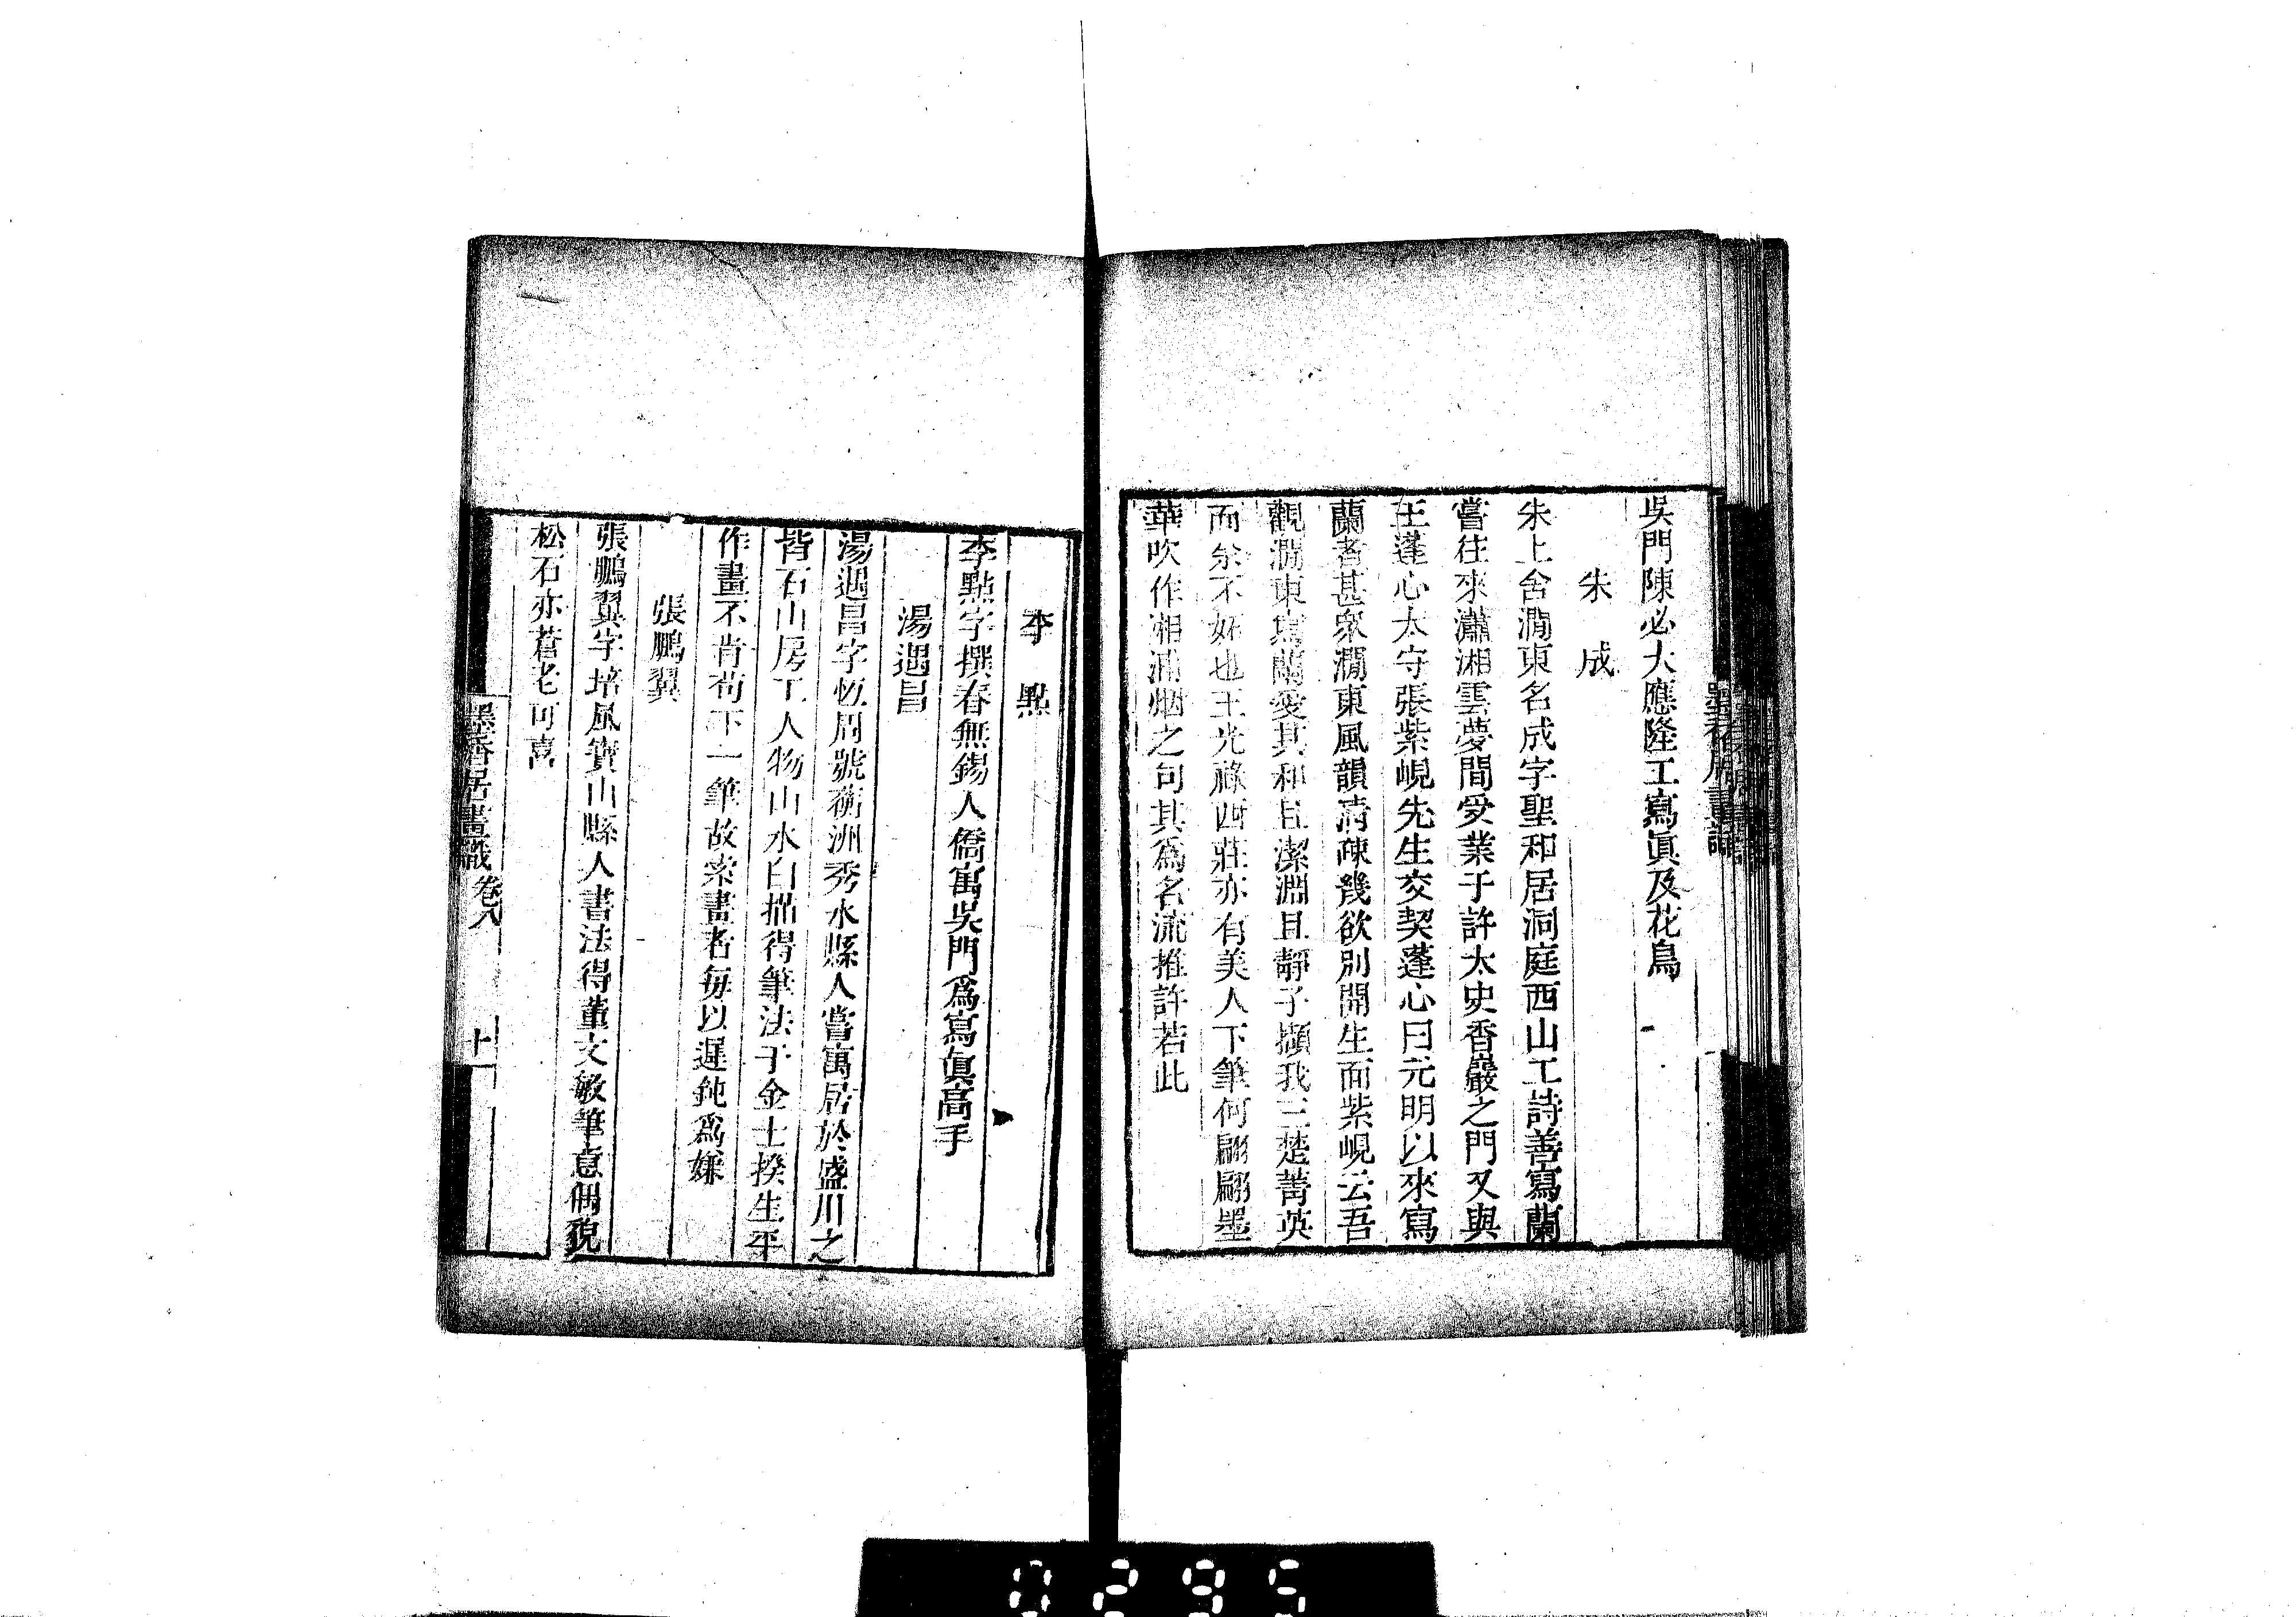 吳門陳必大應隆工寫眞及花鳥
朱成
朱上舍澗東名成字聖和居洞庭西山工詩善寫蘭
嘗往來瀟湘雲夢間受業于許太史香巖之門又與
王蓬心太守張紫峴先生交契蓬心曰元明以來寫
蘭者甚衆澗東風韻清疎幾欲別開生面紫峴云吾
觀澗東寫蘭愛其和且潔淵且靜子擷我三楚菁英
而余不妬也王光祿西莊亦有美人下筆何翩翩墨
華吹作湘浦烟之句其爲名流推許若此
李點
李點字撰春無錫人僑寓吳門爲寫眞高手
湯遇昌
湯遇昌字恆周號蘅洲秀水縣人嘗寓居於盛川之
皆石山房工人物山水白描得筆法于金士揆生平
作畫不肯苟下一筆故索畫者每以遲鈍爲嫌
張鵬翼
張鵬翼字培風寶山縣人書法得董文敏筆意偶貌
松石亦蒼老可喜
墨香居畫識 卷八 十一
0295